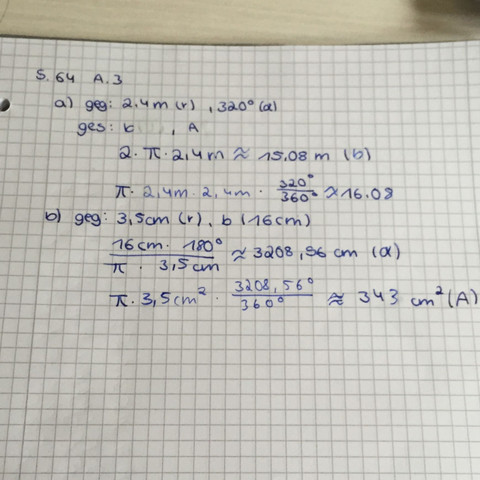 S. 64 A. 3
a) geg: 2,4m (r), 320° (α)
ges: b , A
2 · π · 2,4m ≈ 15.08 m (b)
π · 2,4m · 2,4m · 320°/360° ≈ 16.08
b) geg: 3,5cm (r), b (16cm)
16cm · 180°/π · 3,5cm ≈ 3208,56 cm (α)
π · 3,5cm² · 3208,56°/360° ≈ 343 cm² (A)